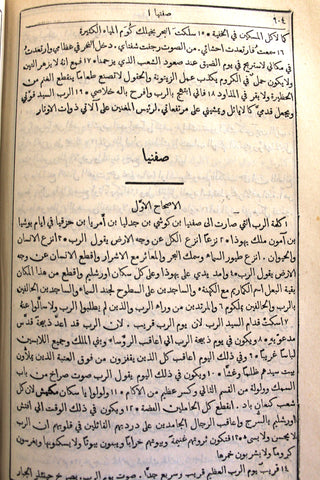 ٩٠٤ صفنيا ١
كما لأكل المسكين في الخفية ١٥ سلكت البحر بخيلك كُوَم المياه الكثيرة
١٦ سمعتُ فارتعدت احشائي. من الصوت رجفت شفتاي. دخل النخر في عظامي وارتعدتُ
في مكاني لاستريح في يوم الضيق عند صعود الشعب الذي يزحمنا ١٧ فمع انه لا يزهر التين
ولا يكون حمل في الكروم يكذب عمل الزيتونة والحقول لا تصنع طعامًا ينقطع الغنم من
الحظيرة ولا بقر في المذاود ١٨ فاني ابتهج بالرب وافرح باله خلاصي ١٩ الرب السيد قوتي
ويجعل قدميَّ كالايائل ويمشيني على مرتفعاتي. لرئيس المغنين على آلاتي ذوات الاوتار
صفنيا
الاصحاح الاوّل
١ كلمة الرب التي صارت الى صفنيا بن كوشي بن جدليا بن أمريا بن حزقيا في ايام يوشيا
بن آمون ملك يهوذا ٢ نزعًا انزع الكل عن وجه الارض يقول الرب ٣ انزع الانسان
والحيوان. انزع طيور السماء وسمك البحر والمعاثر مع الاشرار واقطع الانسان عن وجه
الارض يقول الرب ٤ وامد يدي على يهوذا وعلى كل سكان اورشليم واقطع من هذا المكان
بقية البعل اسم الكماريم مع الكهنة ٥ والساجدين على السطوح لجند السماء والساجدين الحالفين
بالرب والحالفين بملكوم ٦ والمرتدين من وراء الرب والذين لم يطلبوا الرب ولا سألوا عنهُ
٧ اسكت قدام السيد الرب لان يوم الرب قريب. لان الرب قد اعدّ ذبيحة قدّس
مدعوّيه ٨ ويكون في يوم ذبيحة الرب اني اعاقب الرؤساء وبني الملك وجميع اللابسين
لباسًا غريبًا ٩ وفي ذلك اليوم اعاقب كل الذين يقفزون من فوق العتبة الذين يملأون
بيت سيدهم ظلمًا وغشًا ١٠ ويكون في ذلك اليوم يقول الرب صوت صراخ من باب
السمك وولولة من القسم الثاني وكسر عظيم من الآكام ١١ ولولوا يا سكان مكتيش لان كل
شعب كنعان باد. انقطع كل الحاملين الفضة ١٢ ويكون في ذلك الوقت اني افتش
اورشليم بالسرج واعاقب الرجال الجامدين على دُرديهم القائلين في قلوبهم ان الرب
لا يحسن ولا يسيء ١٣ فتكون ثروتهم غنيمة وبيوتهم خرابًا ويبنون بيوتًا ولا يسكنونها ويغرسون
كرومًا ولا يشربون خمرها
١٤ قريب يوم الرب العظيم قريب وسريع جدًّا. صوت يوم الرب. يصرخ حينئذٍ الجبار